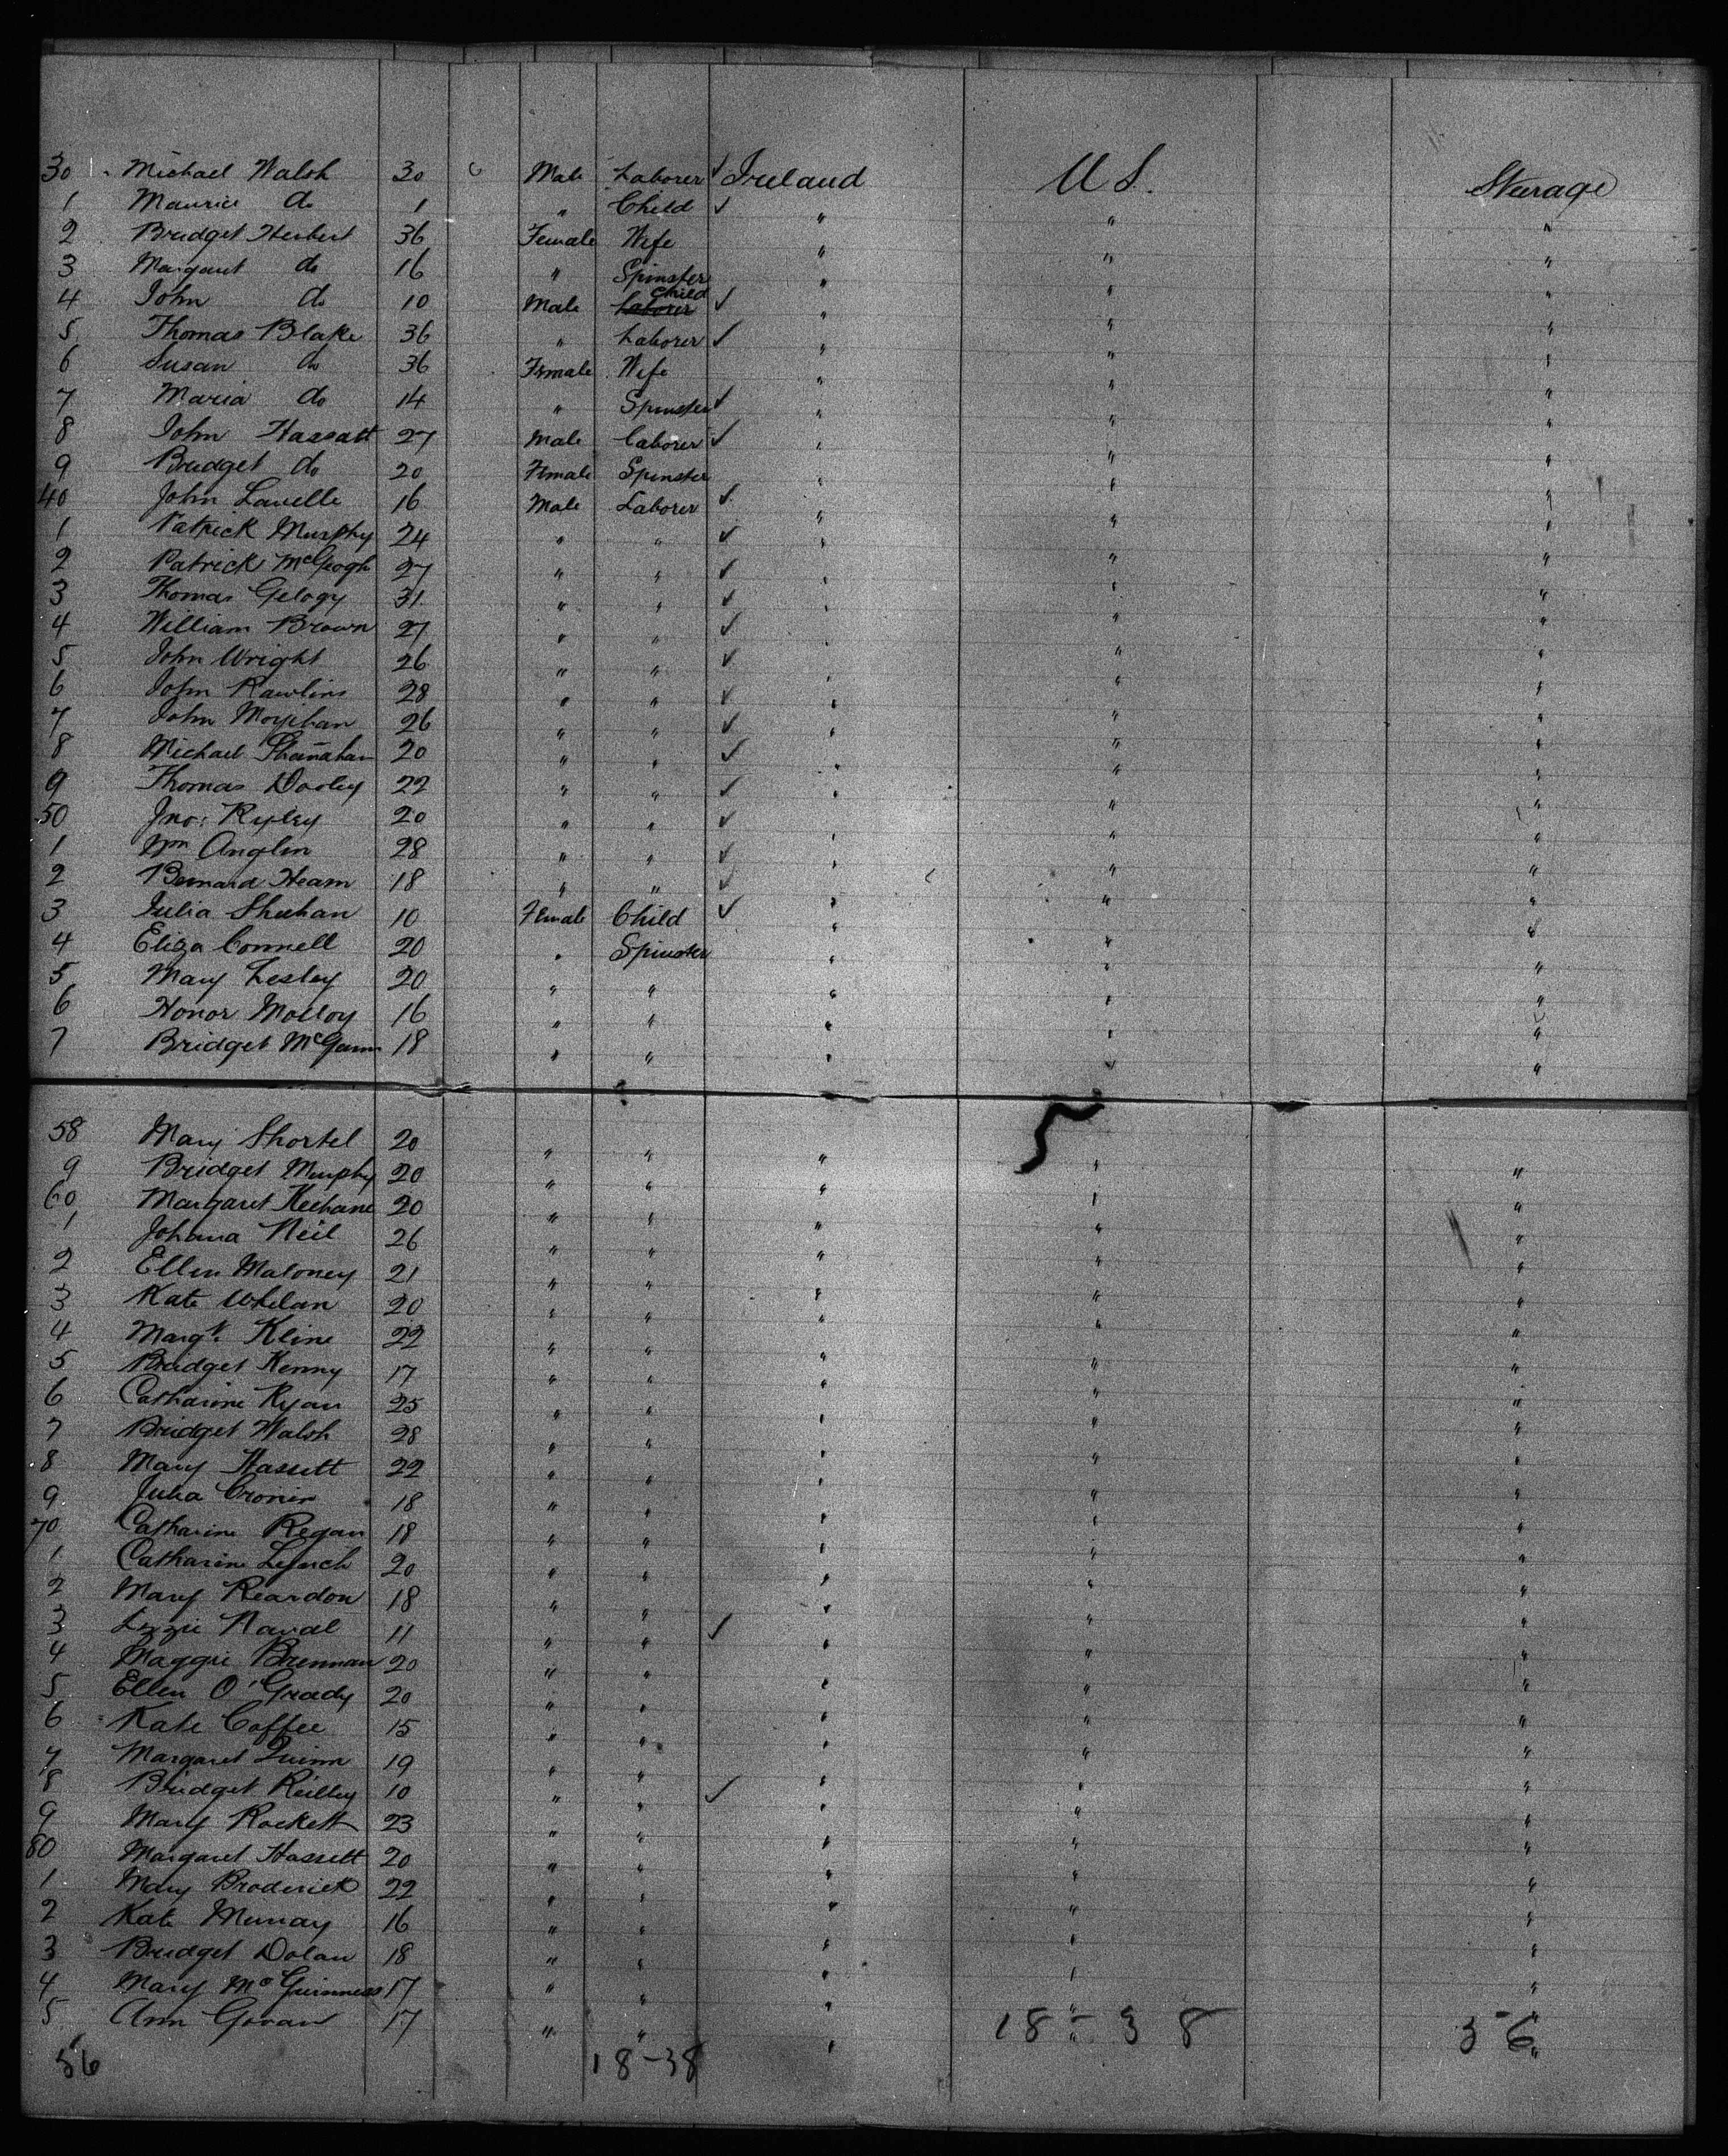 30 Michael Walsh 30 Male Laborer ✓ Ireland U S. Steerage
1 Maurice do 1 " Child ✓ " " "
2 Bridget Herbert 36 Female Wife " " "
3 Margaret do 16 " Spinster " " "
child
4 John do 10 Male Laborer ✓ " " "
5 Thomas Blake 36 " Laborer ✓ " " "
6 Susan do 36 Female Wife " " "
7 Maria do 14 " Spinster ✓ " " "
8 John Hassatt 27 Male Laborer ✓ " " "
9 Bridget do 20 Female Spinster " " "
40 John Lavelle 16 Male Laborer ✓ " " "
1 Patrick Murphy 24 " " ✓ " " "
2 Patrick McGeogh 27 " " ✓ " " "
3 Thomas Gelogy 31 " " ✓ " " "
4 William Brown 27 " " ✓ " " "
5 John Wright 26 " " ✓ " " "
6 John Rawlins 28 " " ✓ " " "
7 John Moyihan 26 " " ✓ " " "
8 Michael Shanahan 20 " " ✓ " " "
9 Thomas Dooley 22 " " ✓ " " "
50 Jno: Ryley 20 " " ✓ " " "
1 Wm Anglin 28 " " ✓ " " "
2 Bernard Hearn 18 " " ✓ " " "
3 Julia Sheehan 10 Female Child ✓ " " "
4 Eliza Connell 20 " Spinster " " "
5 Mary Lesley 20 " " " " "
6 Honor Molloy 16 " " " " "
7 Bridget McGann 18 " " " " "
58 Mary Shortel 20 " " " " "
9 Bridget Murphy 20 " " " " "
60 Margaret Keehane 20 " " " " "
1 Johana Neil 26 " " " " "
2 Ellen Maloney 21 " " " " "
3 Kate Whelan 20 " " " " "
4 Margt. Kline 22 " " " " "
5 Bridget Kenny 17 " " " " "
6 Catharine Ryan 25 " " " " "
7 Bridget Walsh 28 " " " " "
8 Mary Hassett 22 " " " " "
9 Julia Cronin 18 " " " " "
70 Catharine Regan 18 " " " " "
1 Catharine Lynch 20 " " " " "
2 Mary Reardon 18 " " " " "
3 Lizzie Naval 11 " " ✓ " " "
4 Maggie Brennan 20 " " " " "
5 Ellen O'Grady 20 " " " " "
6 Kate Coffee 15 " " " " "
7 Margaret Quinn 19 " " " " "
8 Bridget Reilley 10 " " ✓ " " "
9 Mary Rockett 23 " " " " "
80 Margaret Hassett 20 " " " " "
1 Mary Broderick 22 " " " " "
2 Kate Murray 16 " " " " "
3 Bridget Dolan 18 " " " " "
4 Mary McGuinness 17 " " " " "
5 Ann Govan 17 " " " " "
56 18-38 18-38 56